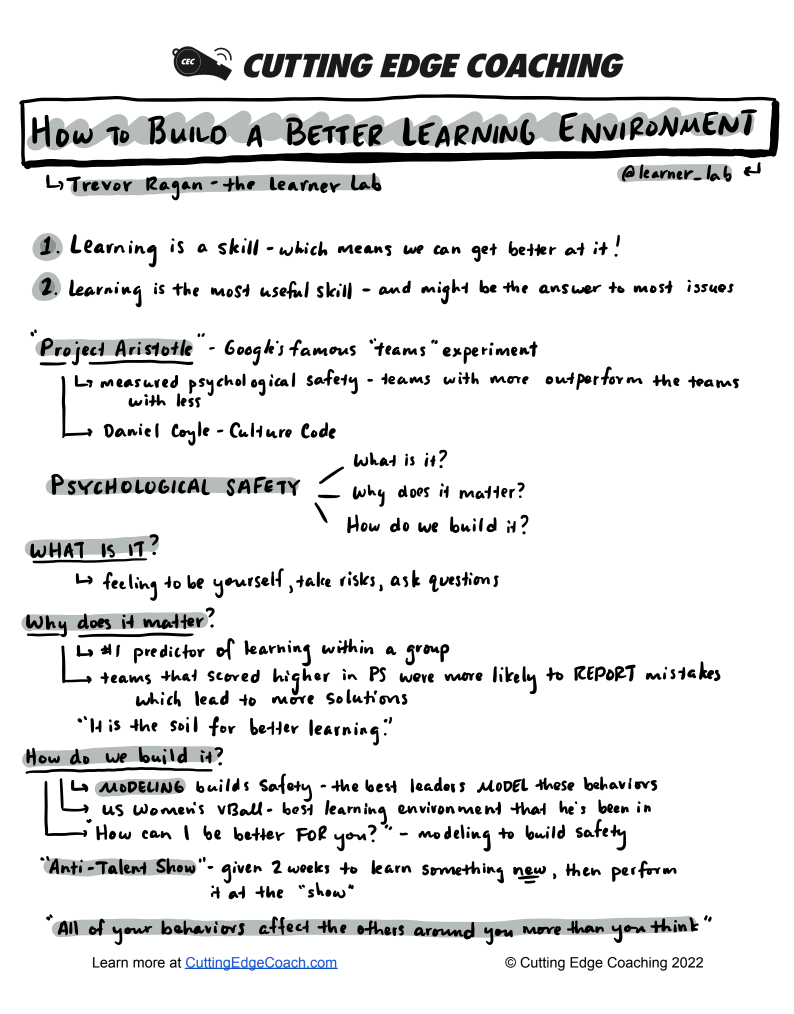 CEC
CUTTING EDGE COACHING
HOW TO BUILD A BETTER LEARNING ENVIRONMENT
↳ Trevor Ragan - the Learner Lab
@learner_lab ↵
1. Learning is a skill - which means we can get better at it!
2. Learning is the most useful skill - and might be the answer to most issues
"Project Aristotle" - Google's famous "teams" experiment
↳ measured psychological safety - teams with more outperform the teams
with less
→ Daniel Coyle - Culture Code
PSYCHOLOGICAL SAFETY
What is it?
Why does it matter?
How do we build it?
WHAT IS IT?
↳ feeling to be yourself, take risks, ask questions
Why does it matter?
↳ #1 predictor of learning within a group
→ teams that scored higher in PS were more likely to REPORT mistakes
which lead to more solutions
"It is the soil for better learning."
How do we build it?
↳ MODELING builds safety - the best leaders MODEL these behaviors
→ US Women's VBall - best learning environment that he's been in
→ "How can I be better FOR you?" - modeling to build safety
"Anti-Talent Show" - given 2 weeks to learn something new, then perform
it at the "show"
"All of your behaviors affect the others around you more than you think"
Learn more at CuttingEdgeCoach.com
© Cutting Edge Coaching 2022